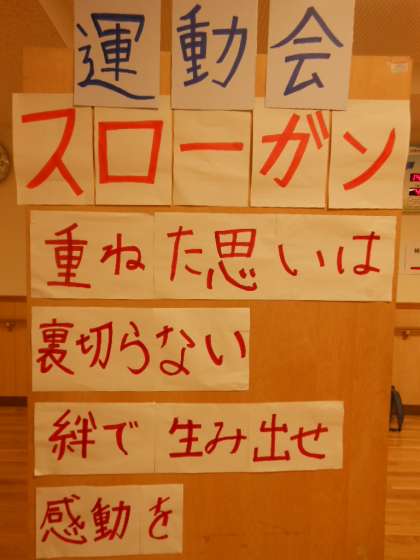 運動会
スローガン
重ねた思いは
裏切らない
絆で生み出せ
感動を